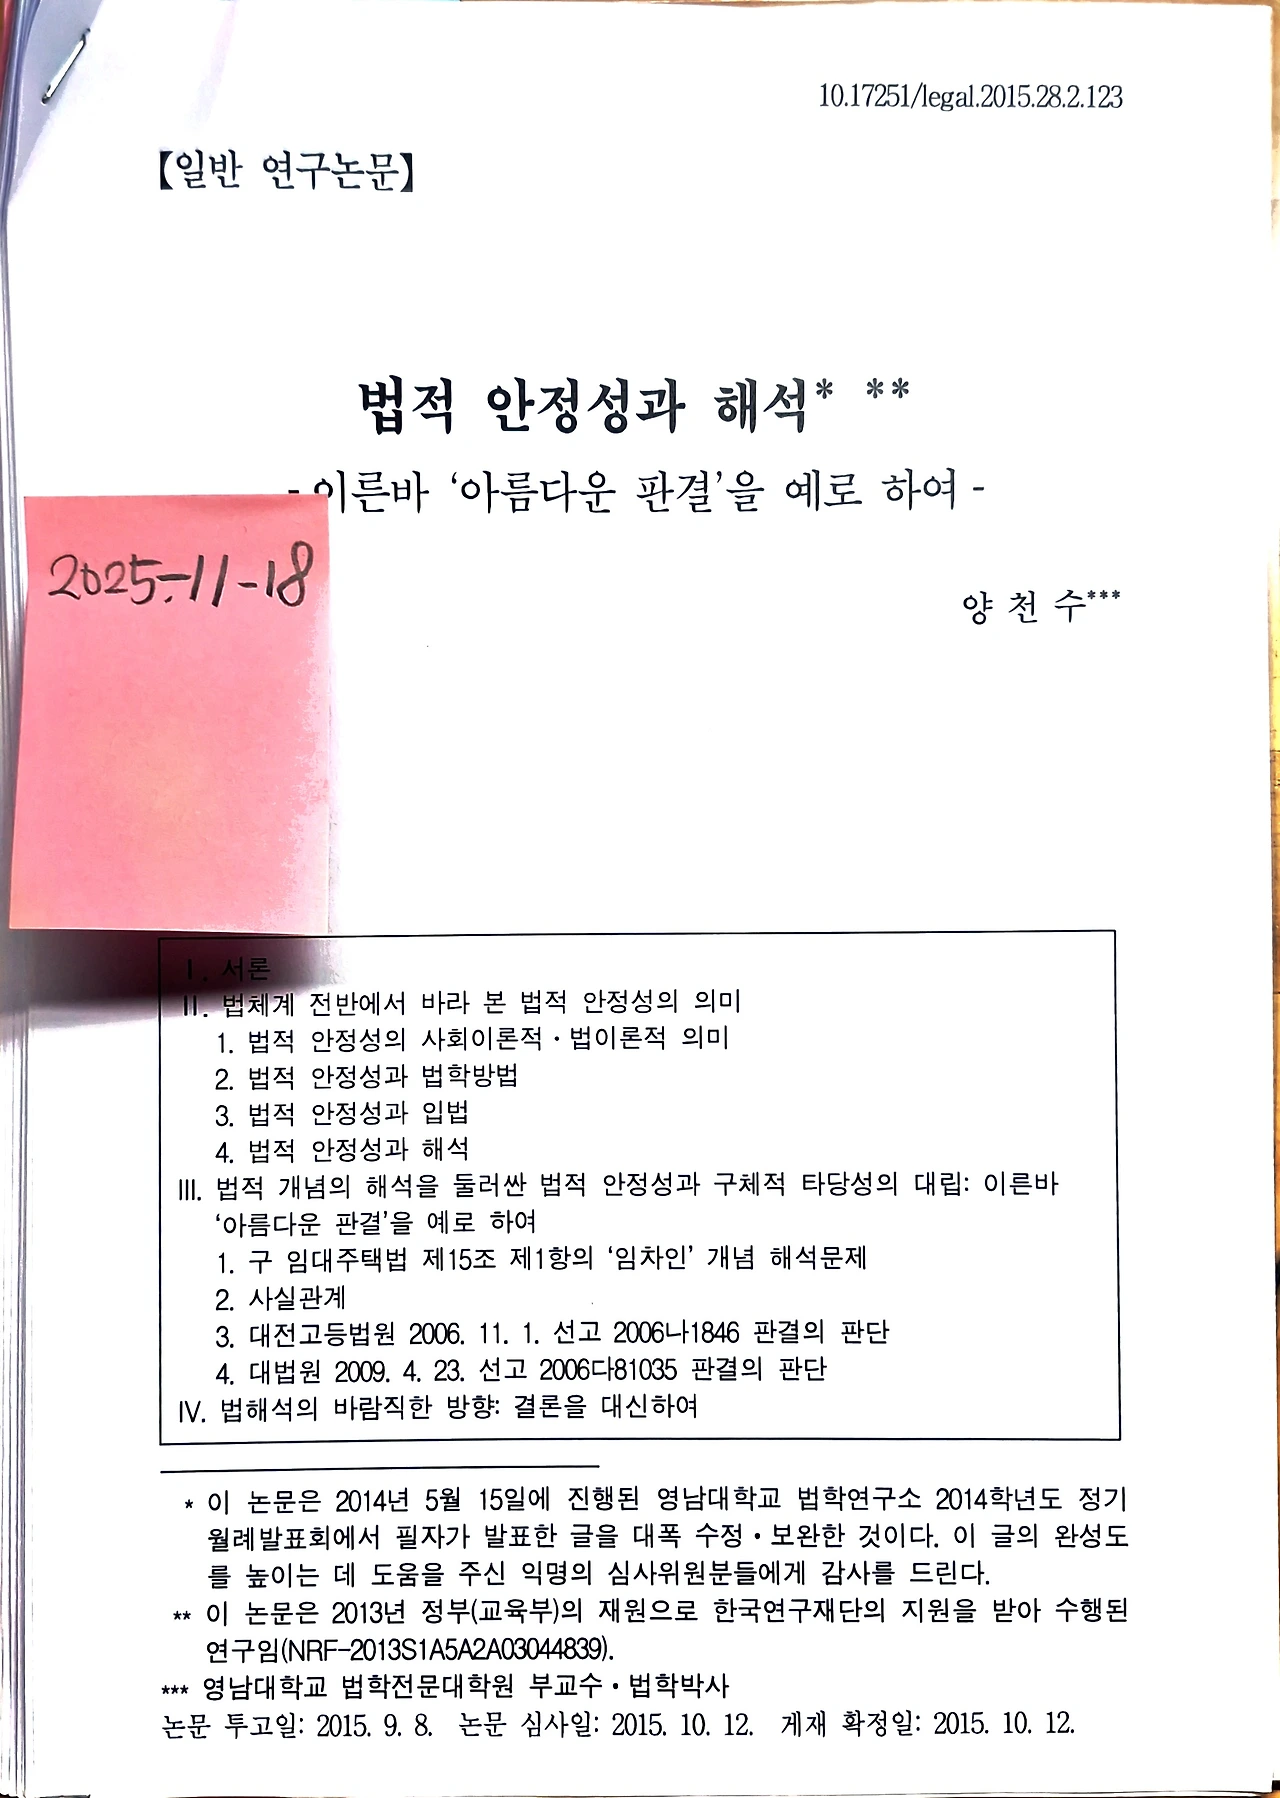 10.17251/legal.2015.28.2.123
【일반 연구논문】
법적 안정성과 해석* **
- 이른바 ‘아름다운 판결’을 예로 하여 -
2025-11-18
양 천 수***
Ⅰ. 서론
Ⅱ. 법체계 전반에서 바라 본 법적 안정성의 의미
1. 법적 안정성의 사회이론적·법이론적 의미
2. 법적 안정성과 법학방법
3. 법적 안정성과 입법
4. 법적 안정성과 해석
Ⅲ. 법적 개념의 해석을 둘러싼 법적 안정성과 구체적 타당성의 대립: 이른바
‘아름다운 판결’을 예로 하여
1. 구 임대주택법 제15조 제1항의 ‘임차인’ 개념 해석문제
2. 사실관계
3. 대전고등법원 2006. 11. 1. 선고 2006나1846 판결의 판단
4. 대법원 2009. 4. 23. 선고 2006다81035 판결의 판단
Ⅳ. 법해석의 바람직한 방향: 결론을 대신하여
* 이 논문은 2014년 5월 15일에 진행된 영남대학교 법학연구소 2014학년도 정기
월례발표회에서 필자가 발표한 글을 대폭 수정·보완한 것이다. 이 글의 완성도
를 높이는 데 도움을 주신 익명의 심사위원분들에게 감사를 드린다.
** 이 논문은 2013년 정부(교육부)의 재원으로 한국연구재단의 지원을 받아 수행된
연구임(NRF-2013S1A5A2A03044839).
*** 영남대학교 법학전문대학원 부교수·법학박사
논문 투고일: 2015. 9. 8. 논문 심사일: 2015. 10. 12. 게재 확정일: 2015. 10. 12.